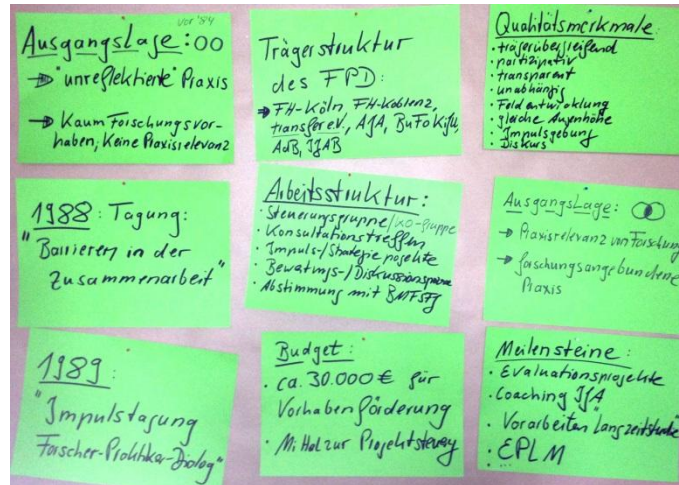 vor '89
Ausgangslage: OO
→ "unreflektierte" Praxis
→ Kaum Forschungsvor-
haben, Keine Praxisrelevanz
1988: Tagung:
"Barrieren in der
Zusammenarbeit"
1989:
"Impulstagung
Forscher-Praktiker-Dialog"
Trägerstruktur
des FPD:
→ FH-Köln, FH-Koblenz,
transfer e.V., AJA, BuFo Kiju,
AdB, IJAB
Arbeitsstruktur:
· Steuerungsgruppe/KO-Gruppe
· Konsultationstreffen
· Impuls-/Strategie projekte
· Beratungs-/Diskussions
· Abstimmung mit BMFSFJ
Budget:
· ca. 30.000 € für
Vorhabenförderung
· Mittel zur Projektsteuerung
Qualitätsmerkmale:
· trägerübergreifend
· partizipativ
· transparent
· unabhängig
· Feldentwicklung
· gleiche Augenhöhe
· Impulsgebung
· Diskurs
Ausgangslage:
→ Praxisrelevanz von Forschung
→ forschungsangebundene
Praxis
Meilensteine:
· Evaluationsprojekte
· Coaching IJA
· Vorarbeiten "Langzeitstudie"
· EPLM
· ...